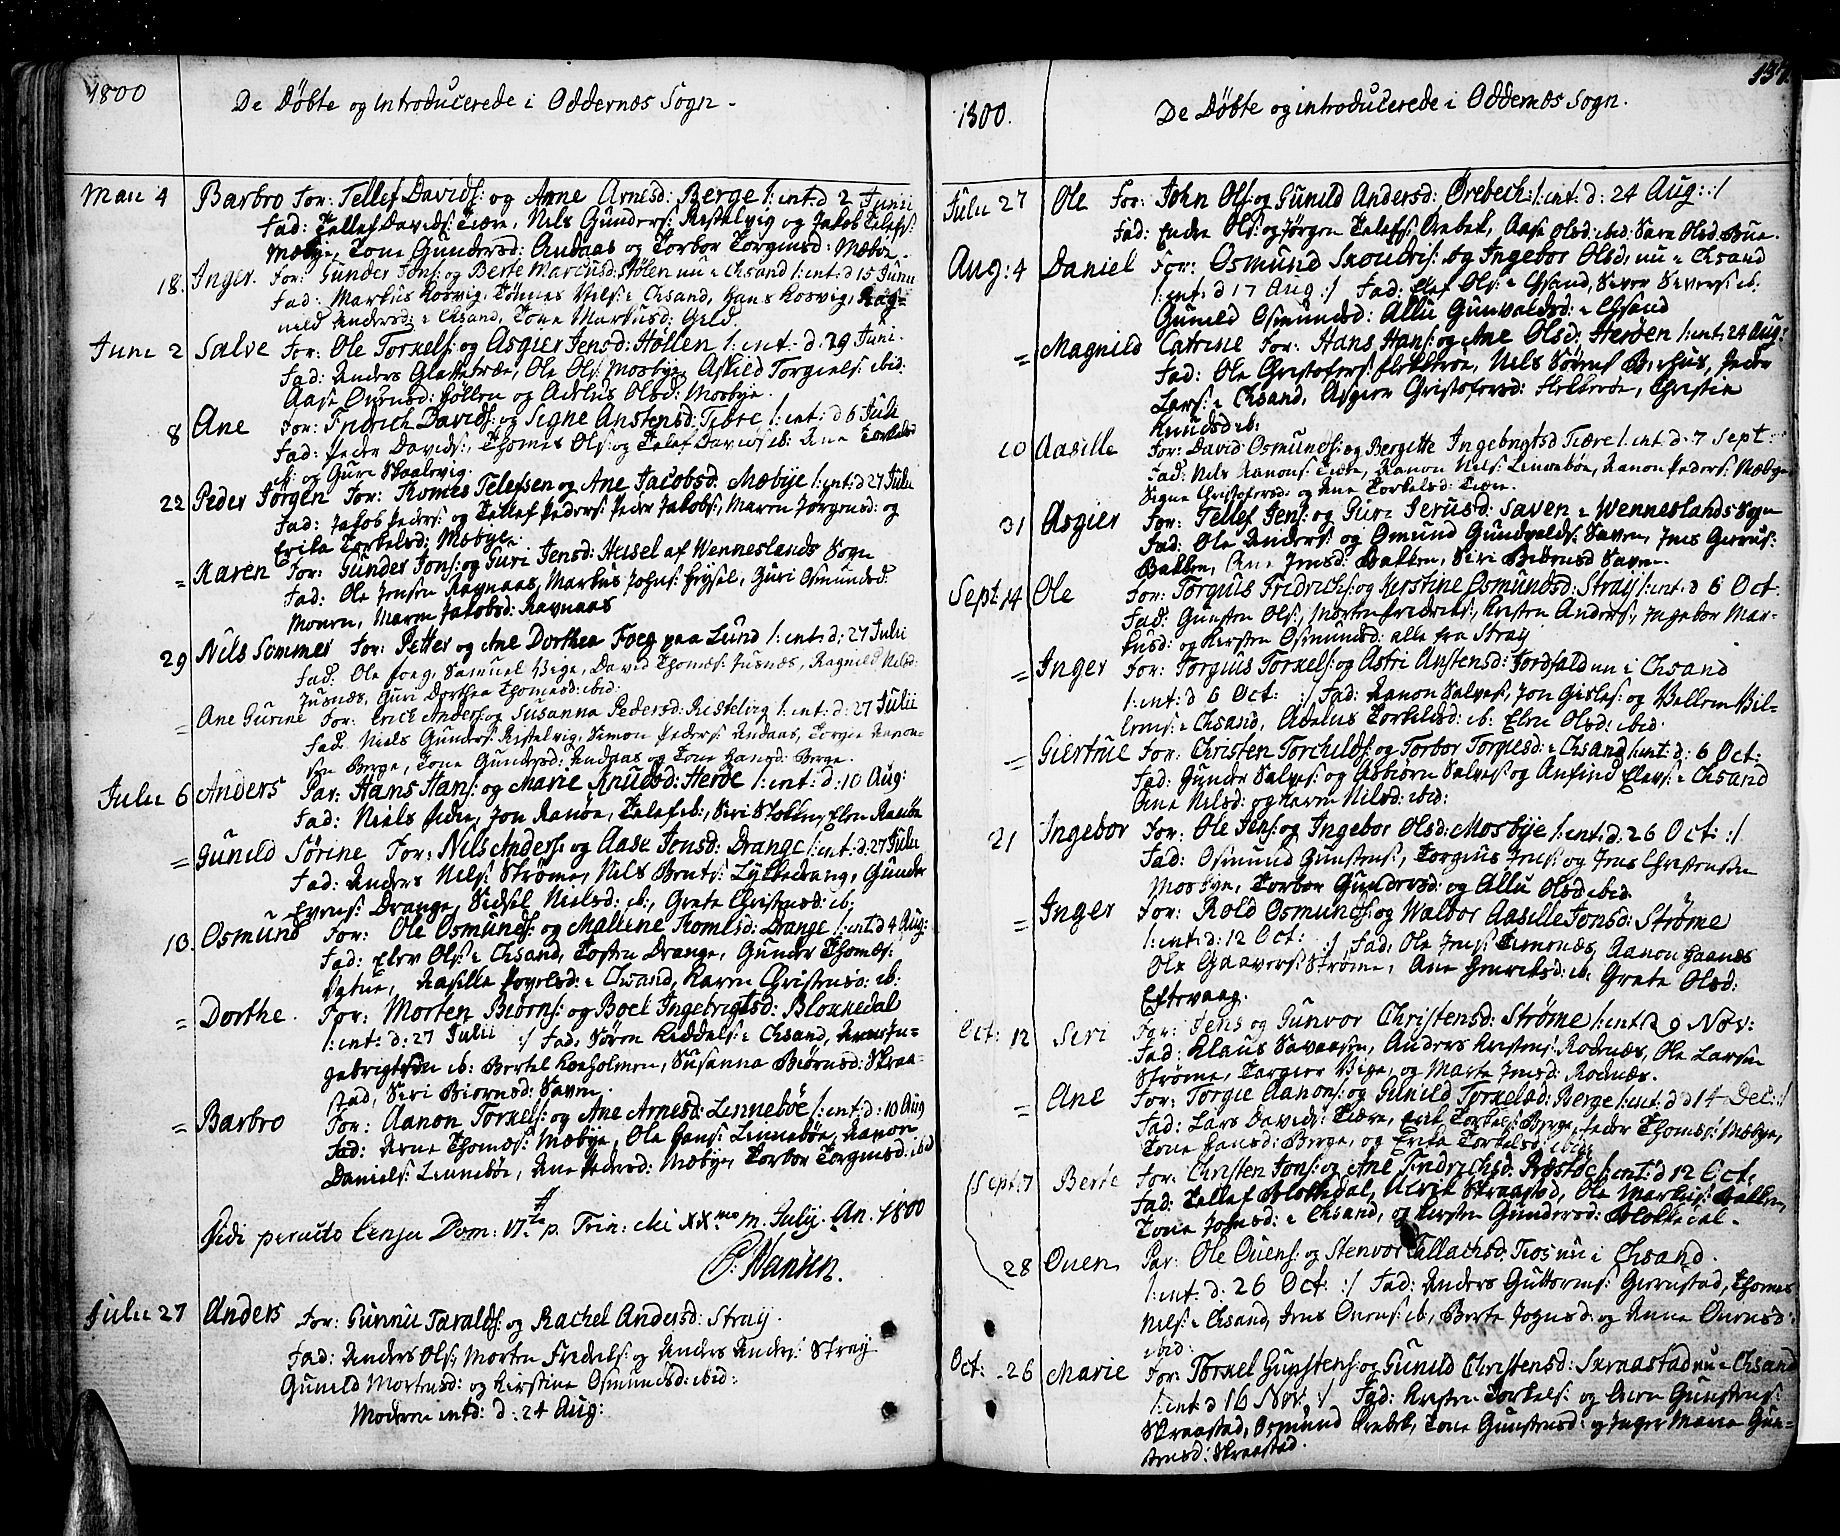 1800
De Döbte og introducerede i Oddernæs Sogn -
Maii 4 Barbro For: Tellef Davids: og Anne Arnesd: Berge /: int: d 2 Junii
Fad: Tellef Davids: Tiære, Nils Gunders: Ristelvig og Jakob Telefs:
Mæbye, Tone Gundersd: Andaas og Torbor Torgiusd: Mæbye.
18. Inger. For: Gunder Jons: og Berte Marcusd: Stölen nu i Chsand /: int: d 15 Junii
Fad: Markus Kosvig, Tönnes Nils: i Chsand, Hans Kosvig, Rag=
nild Andersd: i Chsand, Tone Markusd: Geld.
Junii 2 Salve For: Ole Torkels: og Asgier Jensd: Höllen /: int: d: 29 Juni.
Fad: Anders Glattetræ, Ole Ols: Mosbye, Askild Torgiels: ibid:
Aase Ouensd: Höllen og Adelus Olsd: Mosbye.
8 Ane For: Fridrich Davids: og Signe Anstensd: Tiöre /: int: d 6 Juli
Fad: Peder Davids:, Thomes Ols: og Telef Davids: ib: Ane Torkelsd
ib: og Guri Skaalevig.
22 Peder Jörgen For: Thomes Telefsen og Ane Jacobsd. Mæbye /: int: d 27 Julii
Fad: Jakob Peders: og Tellef Peders: Peder Jakobs:, Maren Jörgensd: og
Erika Torkelsd: Mæbye.
= Karen For: Gunder Jons: og Guri Jensd: Heisel af Wenneslands Sogn
Fad: Ole Jensen Ravnaas, Markus Johns: Heysel, Guri Osmundsd:
Mouen, Maren Jakobsd: Ravnaas
29 Nils Sommer For: Petter og Ane Dorthea Foeg paa Lund /: int: d: 27 Julii
Fad: Ole Foeg, Samuel Vige, David Thomes: Jusnæs, Ragnild Nilsd:
Jusnæs, Guri Dorthea Thomesd: ibid:
= Ane Gurine For: Erick Anders: og Susanna Pedersd: Ristelvig /: int: d: 27 Julii
Fad: Niels Gunders: Ristelvig, Simon Peders: Andaas, Torgie Aanon=
sen Berge, Tone Gundersd: Andaas og Tone Hansd: Berge.
Julii 6 Anders Par: Hans Hans: og Marie Knudsd: Heröe /: int: d: 10 Aug:
Fad: Niels Udöe, Jon Ranöe, Telef ib:, Siri Stokken, Elen Ranöe
= Gunild Sörine For: Nils Anders: og Aase Jensd: Drange /: int: d: 27 Julii
Fad: Anders Nils: Ströme, Nils Bents: Lykkedrang, Gunder
Evens: Drange, Sidsel Nielsd: ib:, Grete Christensd: ib:
13. Osmund For: Ole Osmunds: og Mallene Thomesd: Drange /: int: d 4 Aug:
Fad: Elev Ols: i Chsand, Tosten Drange, Gunder Thomes:
Vatne, Aasille Povelsd: i Chsand, Karen Christensd: ib:
= Dorthe. For: Morten Biörns: og Boel Ingebrigtsd: Blokkedal
/: int: d: 27 Julii :/ Fad: Sören Keddels: i Chsand,
gebrigtsen ib: Bertel Korsholmen, Susanna Biörnsd: Skraa=
stad, Siri Biörnsd: Saven.
= Barbro For: Aanon Torkels: og Ane Arnesd: Linneböe /: int: d: 10 Aug
Fad: Arne Thomes: Mæbye, Ole Hans: Linneböe, Aanon
Daniels: Linneböe, Ane Pedersd: Mæbye, Torbor Torgiusd: ibid
Vidi peracto Censu Dom: VI ta p. Trin: die XX mo m. Julij. An. 1800
P. Hansen.
Julii 27 Anders For: Gunnu Taralds: og Rachel Andersd: Stray.
Fad: Anders Ols: Morten Fridriks: og Anders Anders: Stray
Gunild Mortensd: og Kirstine Osmundsd: ibid:
Moderen intd: d: 24 Aug:
137
1800.
De Döbte og introducerede i Oddernæs Sogn.
Julii 27 Ole For: John Ols: og Gunild Andersd: Örebech /: int: d: 24 Aug: :/
Fad: Endre Ols: og Jörgen Telefs: Örebek, Aase Olsd: ibid: Sara Olsd: Bue.
Aug: 4 Daniel For: Osmund Skouds: og Ingebor Olsd: nu i Chsand
/: int: d 17 Aug :/ Fad: Elef Ols: i Chsand, Siver Sivers: ib:
Gunild Osmundsd: Allu Gunvaldsd: i Chsand
= Magnild Catrine For: Hans Hans: og Ane Olsd: Heröen /: int: 24 Aug:
Fad: Ole Christofers: Flekkeröe, Nils Sörens: Berhus, Peder
Lars: i Chsand, Asgierr Christofersd: Flekkeröe, Christin
Knudsd ib:
10 Aasille For: David Osmunds: og Bergitte Ingebrigtsd Tiære /: int: d: 7 Sept:
Fad: Nils Aanons: Tiære, Aanon Nils: Linneböe, Aanon Peders: Mæbye
Signe Christofersd: og Ane Torkelsd: Tiære.
31 Asgier For: Tellef Jens: og Guri Jerusd: Saven i Wenneslands Sogn
Fad: Ole Anders: og Osmund Gundvalds: Saven, Jens Gierus:
Bakken, Ane Jensd: Bakken, Siri Biörnsd Saven.
Sept: 14 Ole For: Torgius Fridrichs: og Kerstine Osmundsd: Stray /: int: d 6 Oct:
Fad: Gunsten Ols:, Morten Fredriks:, Kristen Anders:, Ingebor Mar-
kusd: og Kersten Osmundsd: alle fra Stray
= Inger For: Torgius Torkels: og Astri Anstensd: Jordfald nu i Chsand
/: int: d 6 Oct: :/ Fad: Aanon Salves:, Jon Gisles: og Vellem Vil-
lems: i Chsand, Adelus Torkelsd: ib: Elen Olsd: ibid:
= Giertrue For: Christen Torchilds: og Torbor Torgiesd: i Chsand /: int: d: 6 Oct:
Fad: Gunder Salves: og Asbiörn Salves: og Anfind Elevs: i Chsand
Ane Nilsd: og Karen Nilsd: ibid:
21 Ingebor For: Ole Jens: og Ingebor Olsd: Mosbye /: int: d: 26 Oct: :/
Fad: Osmund Gunstens:, Torgius Jens: og Jens Christensen
Mosbye, Torbor Gundersd: og Allu Olsd ibid.
= Inger For: Rold Osmunds: og Walbor Aasille Jonsd: Ströme
/: int: d: 12 Oct: :/ Fad: Ole Jens: Timenæs, Aanon Haanæs
Ole Gaavers: Ströme, Ane Henriksd: ib: Grete Olsd:
Eftevaag.
Oct: 12 Seri For: Jens og Gunvor Christensd: Ströme /: int: d 9 Nov:
Fad: Klaus Savaasen, Anders Kristens: Rodenæs, Ole Larsen
Ströme, Targier Vige, og Marte Jensd: Rodenæs.
= Ane For: Torgie Aanons: og Gunild Torkelsd: Berge /: int: d 14 Dec: :/
Fad: Lars Davids: Tiære, Erik Torkels: Berge, Peder Thomes: Mæbye,
Tone Hansd: Berge, og Erika Torkelsd: ibid:
Sept: 7 Berte For: Christen Jons: og Ane Fridrichsd: Præstöe /: int: d 12 Oct:
Fad: Tellef Blokkedal, Ulrik Skraastad, Ole Markus: Hallen,
Tone Johnsd: i Chsand, og Kirsten Gundersd: Blokkedal.
28 Ouen Par: Ole Ouens: og Stenvor Tallachsd. Tios nu i Chsand.
/: int: d. 26 Oct: :/ Fad: Anders Guttorms: Gierrestad, Thomes
Nils: i Chsand, Jens Ouens: ib, Berte Johnsd: og Anna Ouensd:
ibid:
Oct: 26 Marie For: Torkel Gunstens: og Gunild Christensd: Skraastad nu i Chsand
/: int: d 16 Nov: :/ Fad: Kristen Torkels: og Even Gunstens:
Skraastad, Osmund Örebek, Tone Gunstensd: og Inger Maria Gun-
stensd: Skraastad.